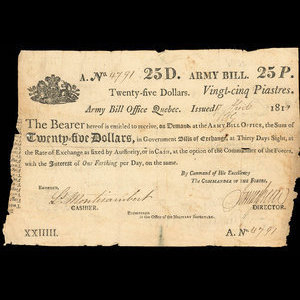 A. No. 4791 25 D. ARMY BILL. 25 P.
Twenty-five Dollars. Vingt-cinq Piastres.
Army Bill Office Quebec. Issued 181
The Bearer hereof is entitled to receive, on Demand at the Army Bill Office, the Sum of
Twenty-five Dollars, in Government Bills of Exchange, at Thirty Days Sight, at
the Rate of Exchange as fixed by Authority, or in Cash, at the option of the Commander of the Forces,
with the Interest of One Farthing per Day, on the same.
By Command of His Excellency
The Commander of the Forces,
Entered,
CASHIER.
DIRECTOR.
Examined
in the Office of the Military Secretary.
A. No. 4791